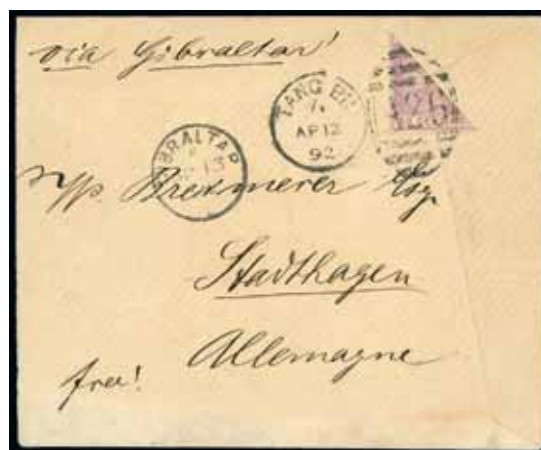 via Gibraltar!
TANGIER
A
AP 12
92
GIBRALTAR
13
A26
Esq.
Stadthagen
Allemagne
free!